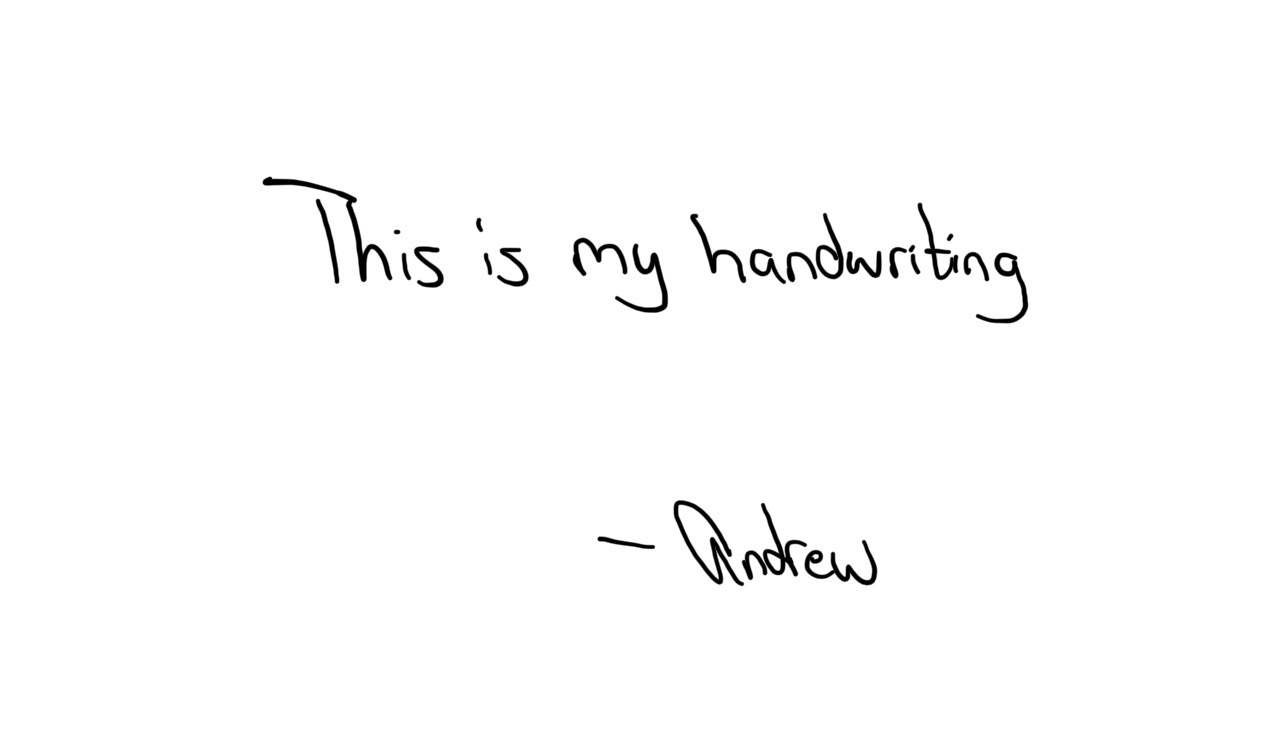 This is my handwriting
— Andrew